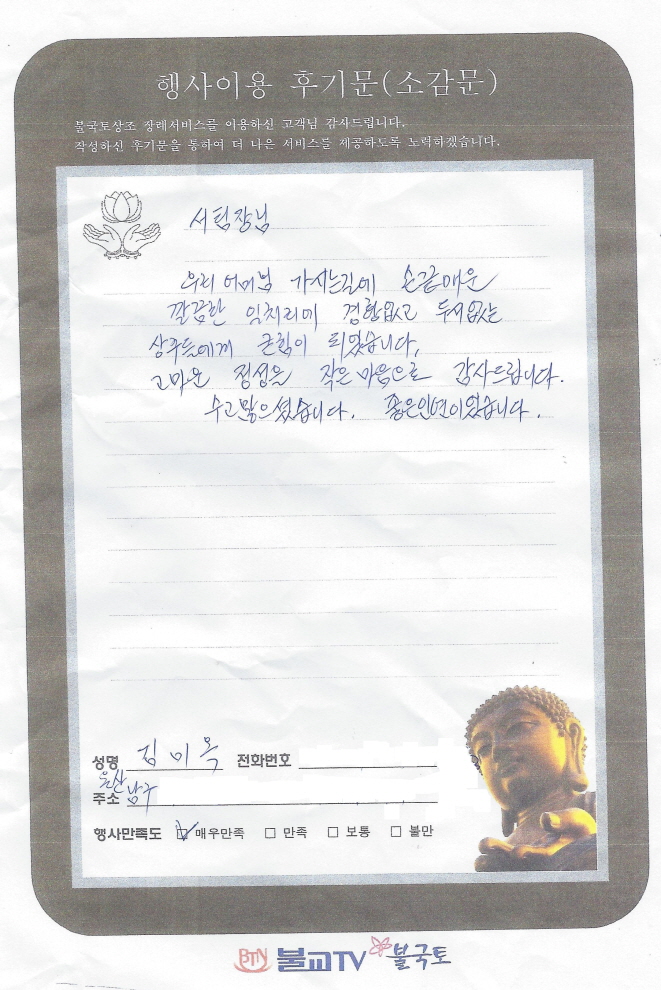 행사이용 후기문(소감문)
불국토상조 장례서비스를 이용하신 고객님 감사드립니다.
작성하신 후기문을 통하여 더 나은 서비스를 제공하도록 노력하겠습니다.
서팀장님
우리 어머님 가시는길에 손끝매운
깔끔한 일처리에 경험없고 두서없는
상주들에게 큰힘이 되었습니다,
고마운 정성을 작은 마음으로 감사드립니다.
수고많으셨습니다. 좋은인연이었습니다.
성명 김미옥 전화번호
울산
주소 남구
행사만족도 ☑ 매우만족 □ 만족 □ 보통 □ 불만
BTN 불교TV 불국토